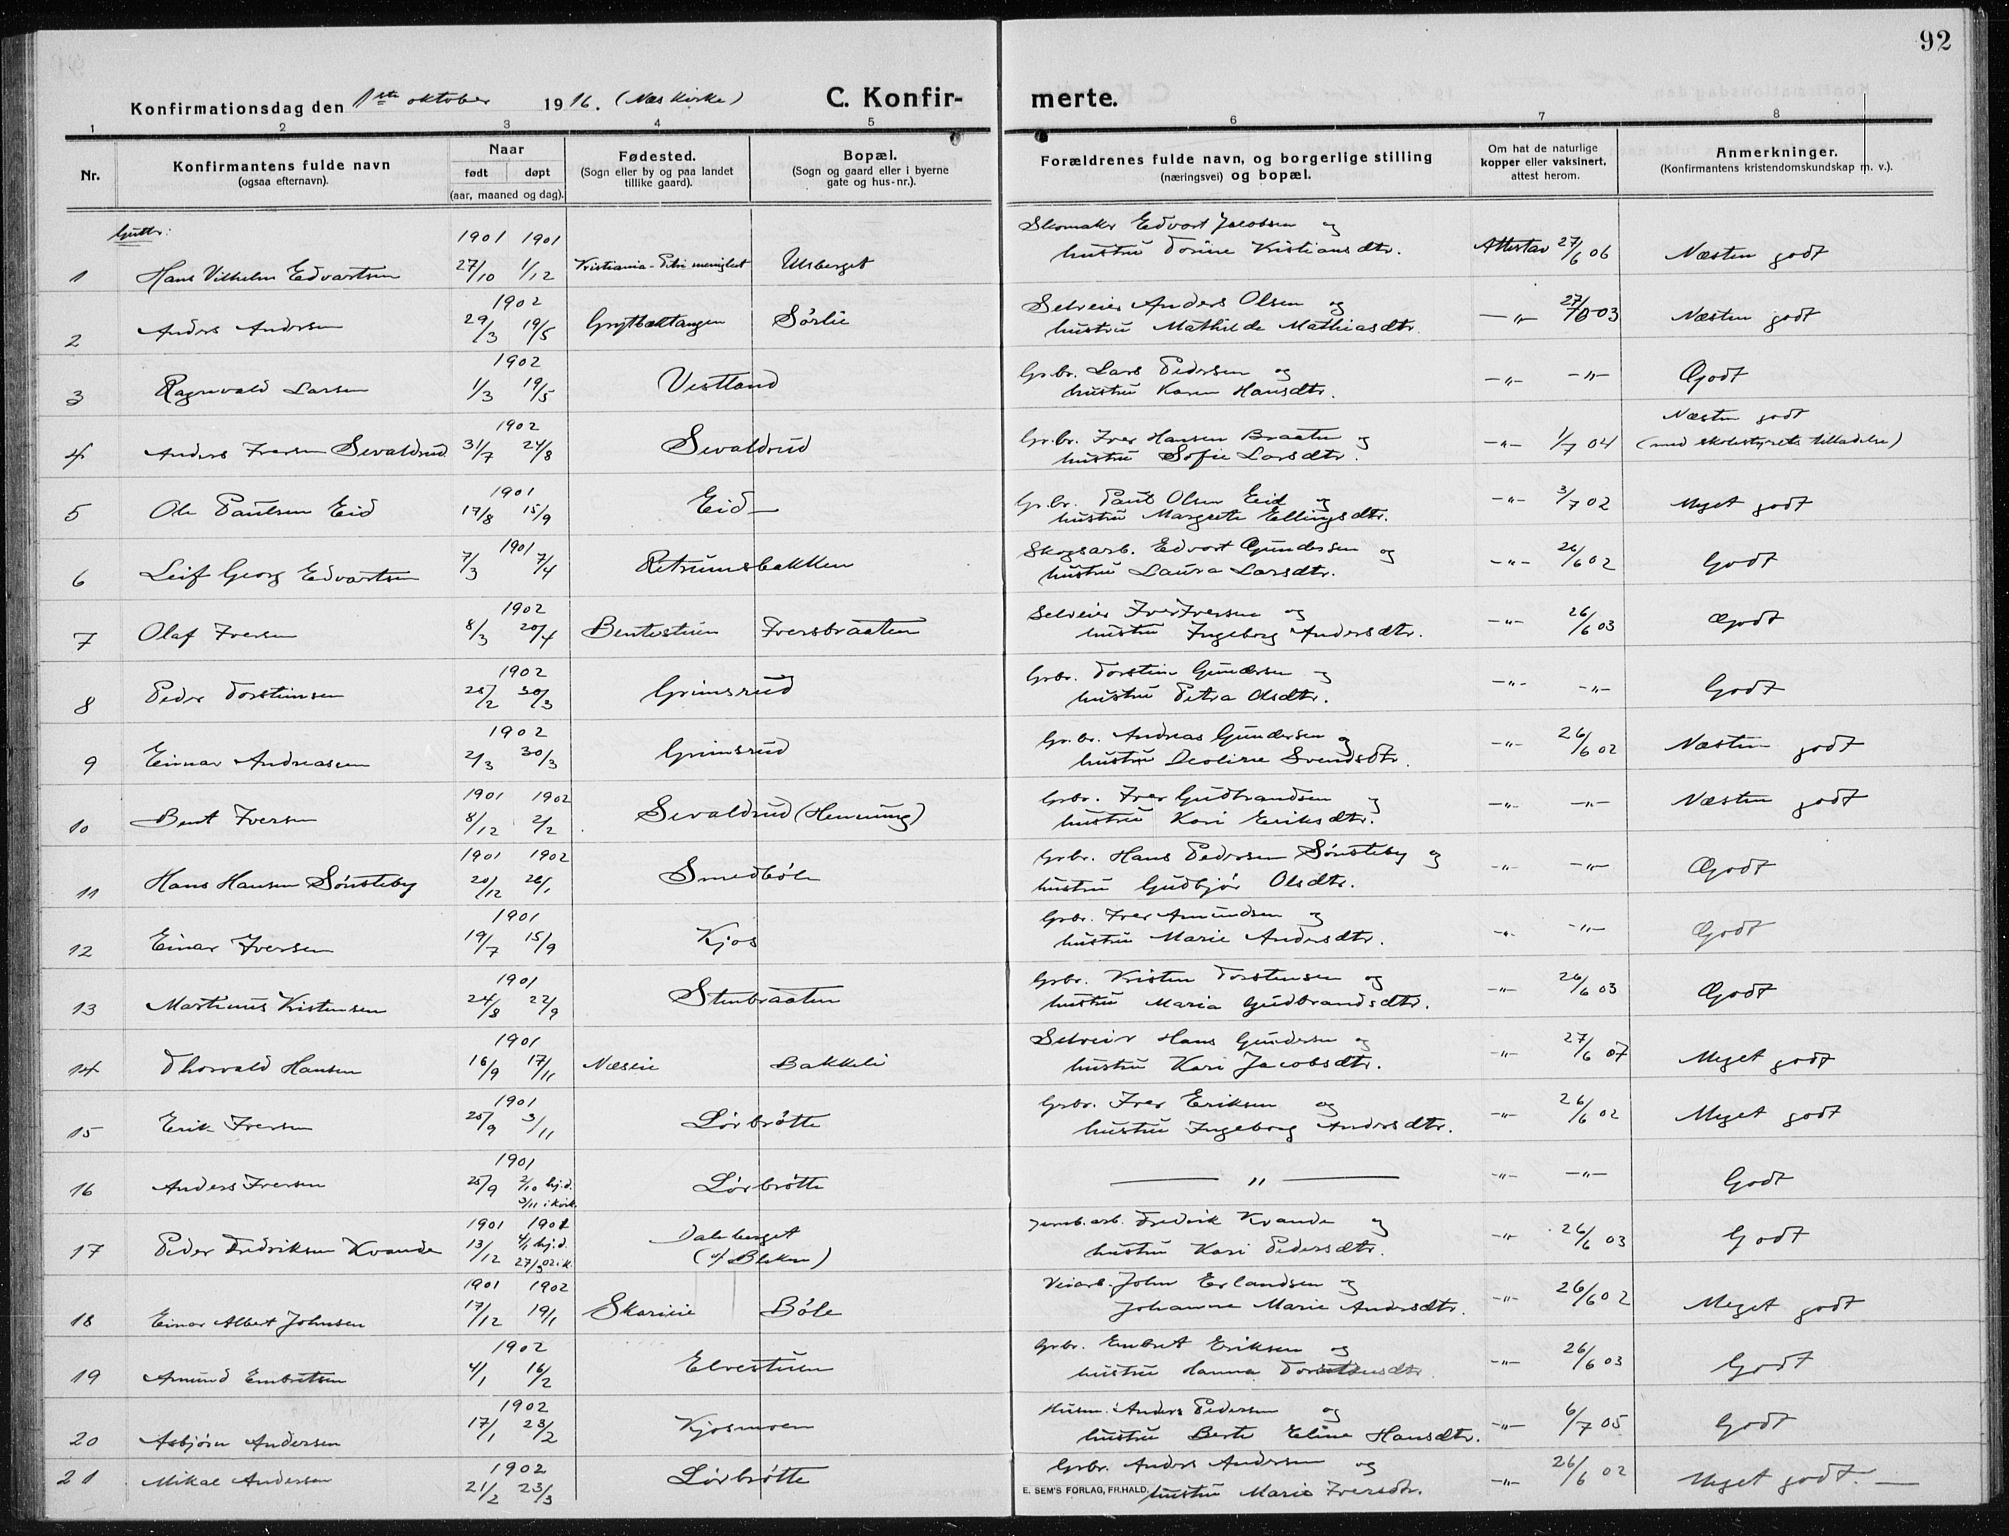 92
Konfirmationsdag den 1ste oktober 1916. (Næs kirke) C. Konfir- merte.
1 2 3 4 5 6 7 8
Nr.
Konfirmantens fulde navn
(ogsaa efternavn).
Naar
født døpt
(aar, maaned og dag).
Fødested.
(Sogn eller by og paa landet
tillike gaard).
Bopæl.
(Sogn og gaard eller i byerne
gate og hus-nr.).
Forældrenes fulde navn, og borgerlige stilling
(næringsvei) og bopæl.
Om hat de naturlige
kopper eller vaksinert,
attest herom.
Anmerkninger.
(Konfirmantens kristendomskundskap m. v.).
Gutter:
1901 1901 Skomaker Edvart Jacobsen og
1 Hans Vilhelm Edvartsen 27/10 1/12 Kristiania - Petri menighet Ulsberget hustru Torine Kristiansdtr. Attestav 27/6 06 Næsten godt
1902 Selveier Anders Olsen og
2 Anders Andersen 29/3 19/5 Grytbæktangen Sørlie hustru Mathilde Mathiasdtr. —"— 03 Næsten godt
1902 Gr.br. Lars Pedersen og
3 Ragnvald Larsen 1/3 19/5 Vestland hustru Karen Hansdtr. —"— —"— Godt
1902 Gr.br. Iver Hansen Braaten og Næsten godt
4 Anders Iversen Sevaldrud 31/7 24/8 Sevaldrud hustru Sofie Larsdtr. —"— 1/7 04 (med skolestyrets tilladelse)
1901 Gr.br. Paul Olsen Eid og
5 Ole Paulsen Eid 17/8 15/9 Eid — hustru Margrete Ellingsdtr. —"— 3/7 02 Meget godt
1901 Skogsarb. Edvart Gundersen og
6 Leif Georg Edvartsen 7/3 7/4 Retrumsbakken hustru Laura Larsdtr. —"— 26/6 02 Godt
1902 Selveier Iver Iversen og
7 Olaf Iversen 8/3 20/4 Bentestuen Iversbraaten hustru Ingeborg Andersdtr. —"— 26/6 03 Godt
1902 Grbr. Torstein Gundersen og
8 Peder Torsteinsen 25/2 30/3 Grimsrud hustru Petra Olsdtr. —"— —"— Godt
1902 Gr.br. Andreas Gundersen og
9 Einar Andreassen 2/3 30/3 Grimsrud hustru Deoline Svendsdtr. —"— 26/6 02 Næsten godt
1901 1902 Grbr. Iver Gudbrandsen og
10 Bent Iversen 8/12 2/2 Sevaldrud (Henning) hustru Kari Eriksdtr. —"— —"— Næsten godt
1901 1902 Grbr. Hans Pedersen Sønsteby og
11 Hans Hansen Sønsteby 20/12 26/1 Smedbøle hustru Gudbjør Olsdtr. —"— —"— Godt
1901 Grbr. Iver Amundsen og
12 Einar Iversen 19/7 15/9 Kjos hustru Marie Andersdtr. —"— —"— Godt
1901 Grbr. Kristen Torstensen og
13 Martinus Kristensen 24/8 22/9 Stenbraaten hustru Maria Gudbrandsdtr. —"— 26/6 03 Godt
1901 Selveier Hans Gundersen og
14 Thorvald Hansen 16/9 17/11 Næseie Bakkeli hustru Kari Jacobsdtr. —"— 27/6 07 Meget godt
1901 Grbr. Iver Eriksen og
15 Erik Iversen 25/9 3/11 Lørbrøtte hustru Ingeborg Andersdtr. —"— 26/6 02 Meget godt
1901
16 Anders Iversen 25/9 2/10 hj.d. 3/11 i kirk. Lørbrøtte —— " —— —"— —"— Godt
1901 1902 Jernb.arb. Fredrik Kvande og
17 Peder Fredriksen Kvande 13/12 4/1 hj.d. 27/3 02 i k. Daleberget (u/ Bleken) hustru Kari Pedersdtr. —"— 26/6 03 Godt
1901 1902 Veiarb. John Erlandsen og
18 Einar Albert Johnsen 17/12 19/1 Skarieie Bøle Johanne Marie Andersdtr. —"— 26/6 02 Meget godt
1902 Grbr. Embret Eriksen og
19 Amund Embretsen 4/1 16/2 Elvestuen hustru Hanna —"— 26/6 03 Godt
1902 Husm. Anders Pedersen og
20 Asbjørn Andersen 17/1 23/2 Kjosmoen hustru Berte Eline Hansdtr. —"— 6/7 05 Godt
1902 Grbr. Anders Andersen og
21 Mikal Andersen 21/2 23/3 Lørbrøtte hustru Marie Iversdtr. —"— 26/6 02 Meget godt. —
E. SEM'S FORLAG, FR.HALD.